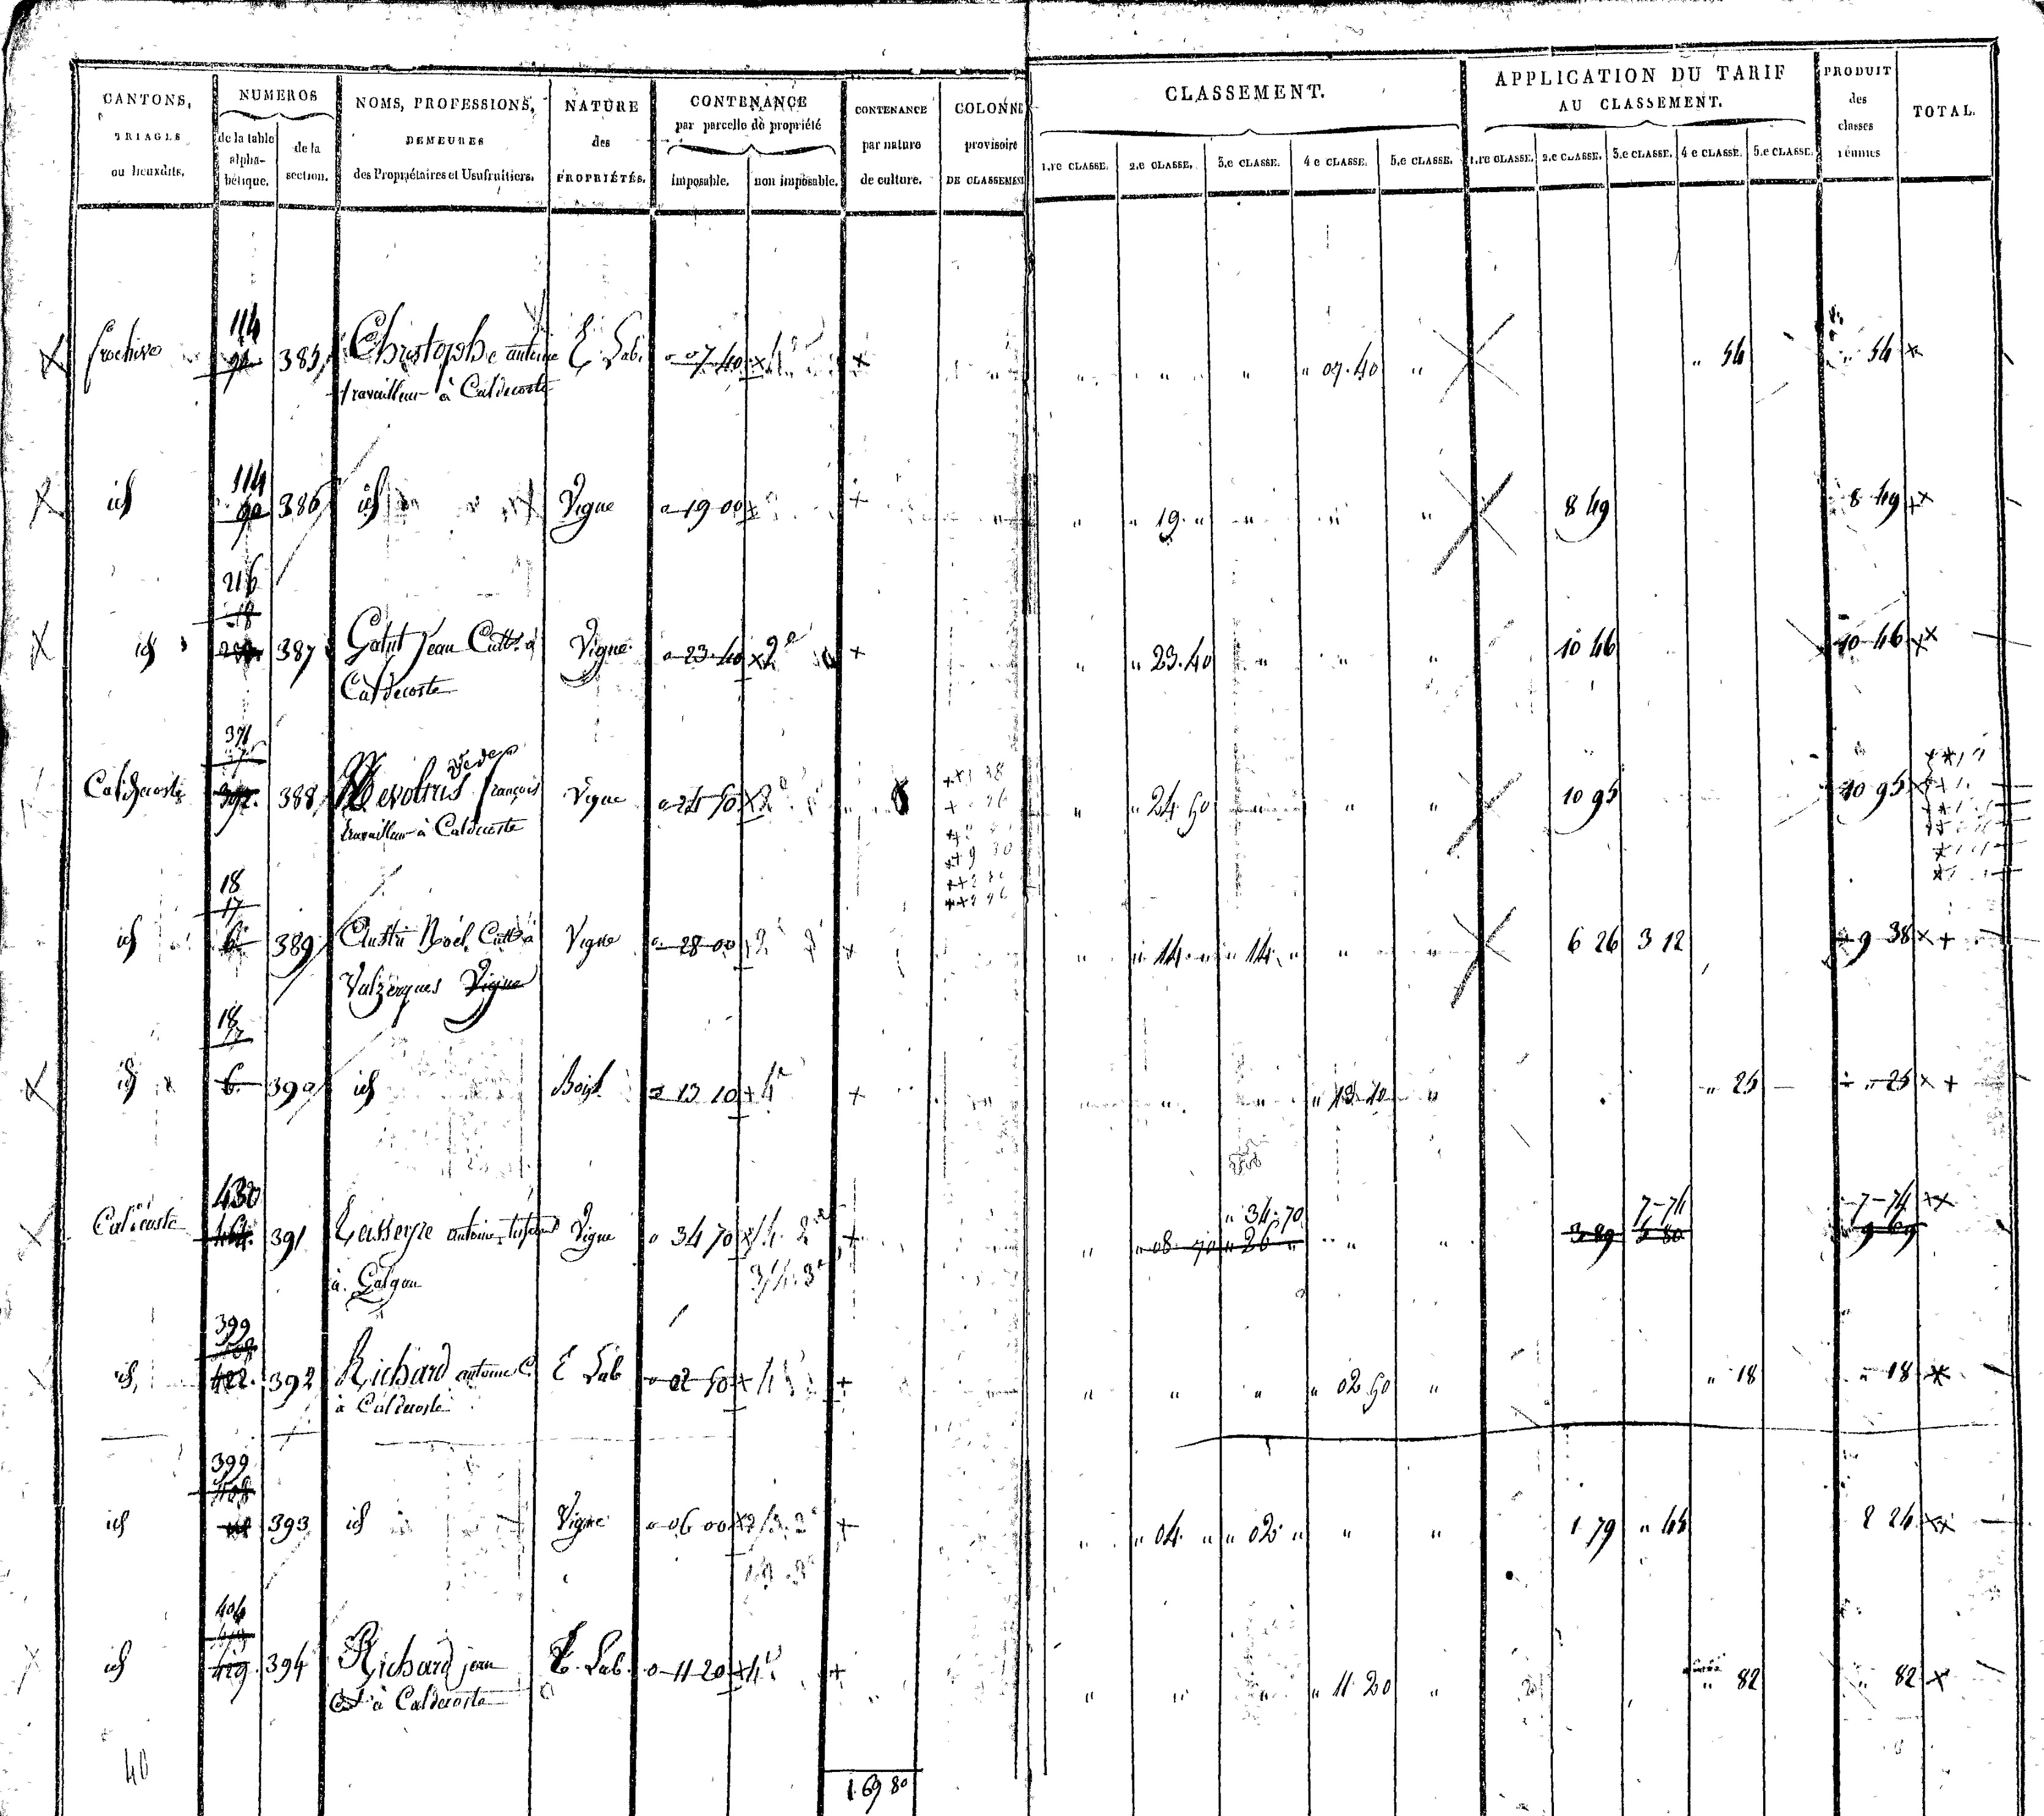 CANTONS, TRIAGES ou lieuxdits.
NUMEROS
de la table alpha-bétique.
de la section.
NOMS, PROFESSIONS, DEMEURES des Propriétaires et Usufruitiers.
NATURE des PROPRIÉTÉS.
CONTENANCE par parcelle de propriété
imposable.
non imposable.
CONTENANCE par nature de culture.
COLONNE provisoire DE CLASSEMENT
CLASSEMENT.
1.re CLASSE. 2.e CLASSE. 3.e CLASSE. 4.e CLASSE. 5.e CLASSE.
APPLICATION DU TARIF AU CLASSEMENT.
1.re CLASSE. 2.e CLASSE. 3.e CLASSE. 4.e CLASSE. 5.e CLASSE.
PRODUIT des classes réunies
TOTAL.
114
385 Christophe antoine E. Lab. 07.40 " " " " 07.40 " " 54 " 54
travailleur à Caldecoste
114
id 90 386 id Vigne 19 00 " " 19 " " " " 8 49 8 49
216
18
id 387 Galut Jean Cult.r à Vigne 23.40 2e " " 23.40 " " " 10 46 10 46
Caldecoste
371
Caldecoste 392 388 françois Vigne 24 50 " " 24 50 " " 10 95 10 95
travailleur à Caldecoste
18
17
id 6 389 Austri Noël Cult.r à Vigne 28 00 " " 14 " " 14 " " " 6 26 3 12 9 38
Valzergues Vigne
18
17
id 6 390 id Bois 13 10 4e " " " " 13 10 " " 25 " 25
430
" 34.70 7-74 7-74
Caldecoste 464 391 Lasserre antoine Vigne 34 70 " " 08 70 " 26 " " " 3 89 5 80 9 69
à Galgan
399
408
id 422 392 Richard antoine C. E Lab 02 50 " " " " 02 50 " " 18 " 18
à Caldecoste
399
408
id 393 id Vigne 06 00 " " 04 " " 02 " " " 1 79 " 45 2 24
404
id 429 394 Richard jean E. Lab. 11 20 4e " " " " 11 20 " " 82 " 82
à Caldecoste
40
1.69 80